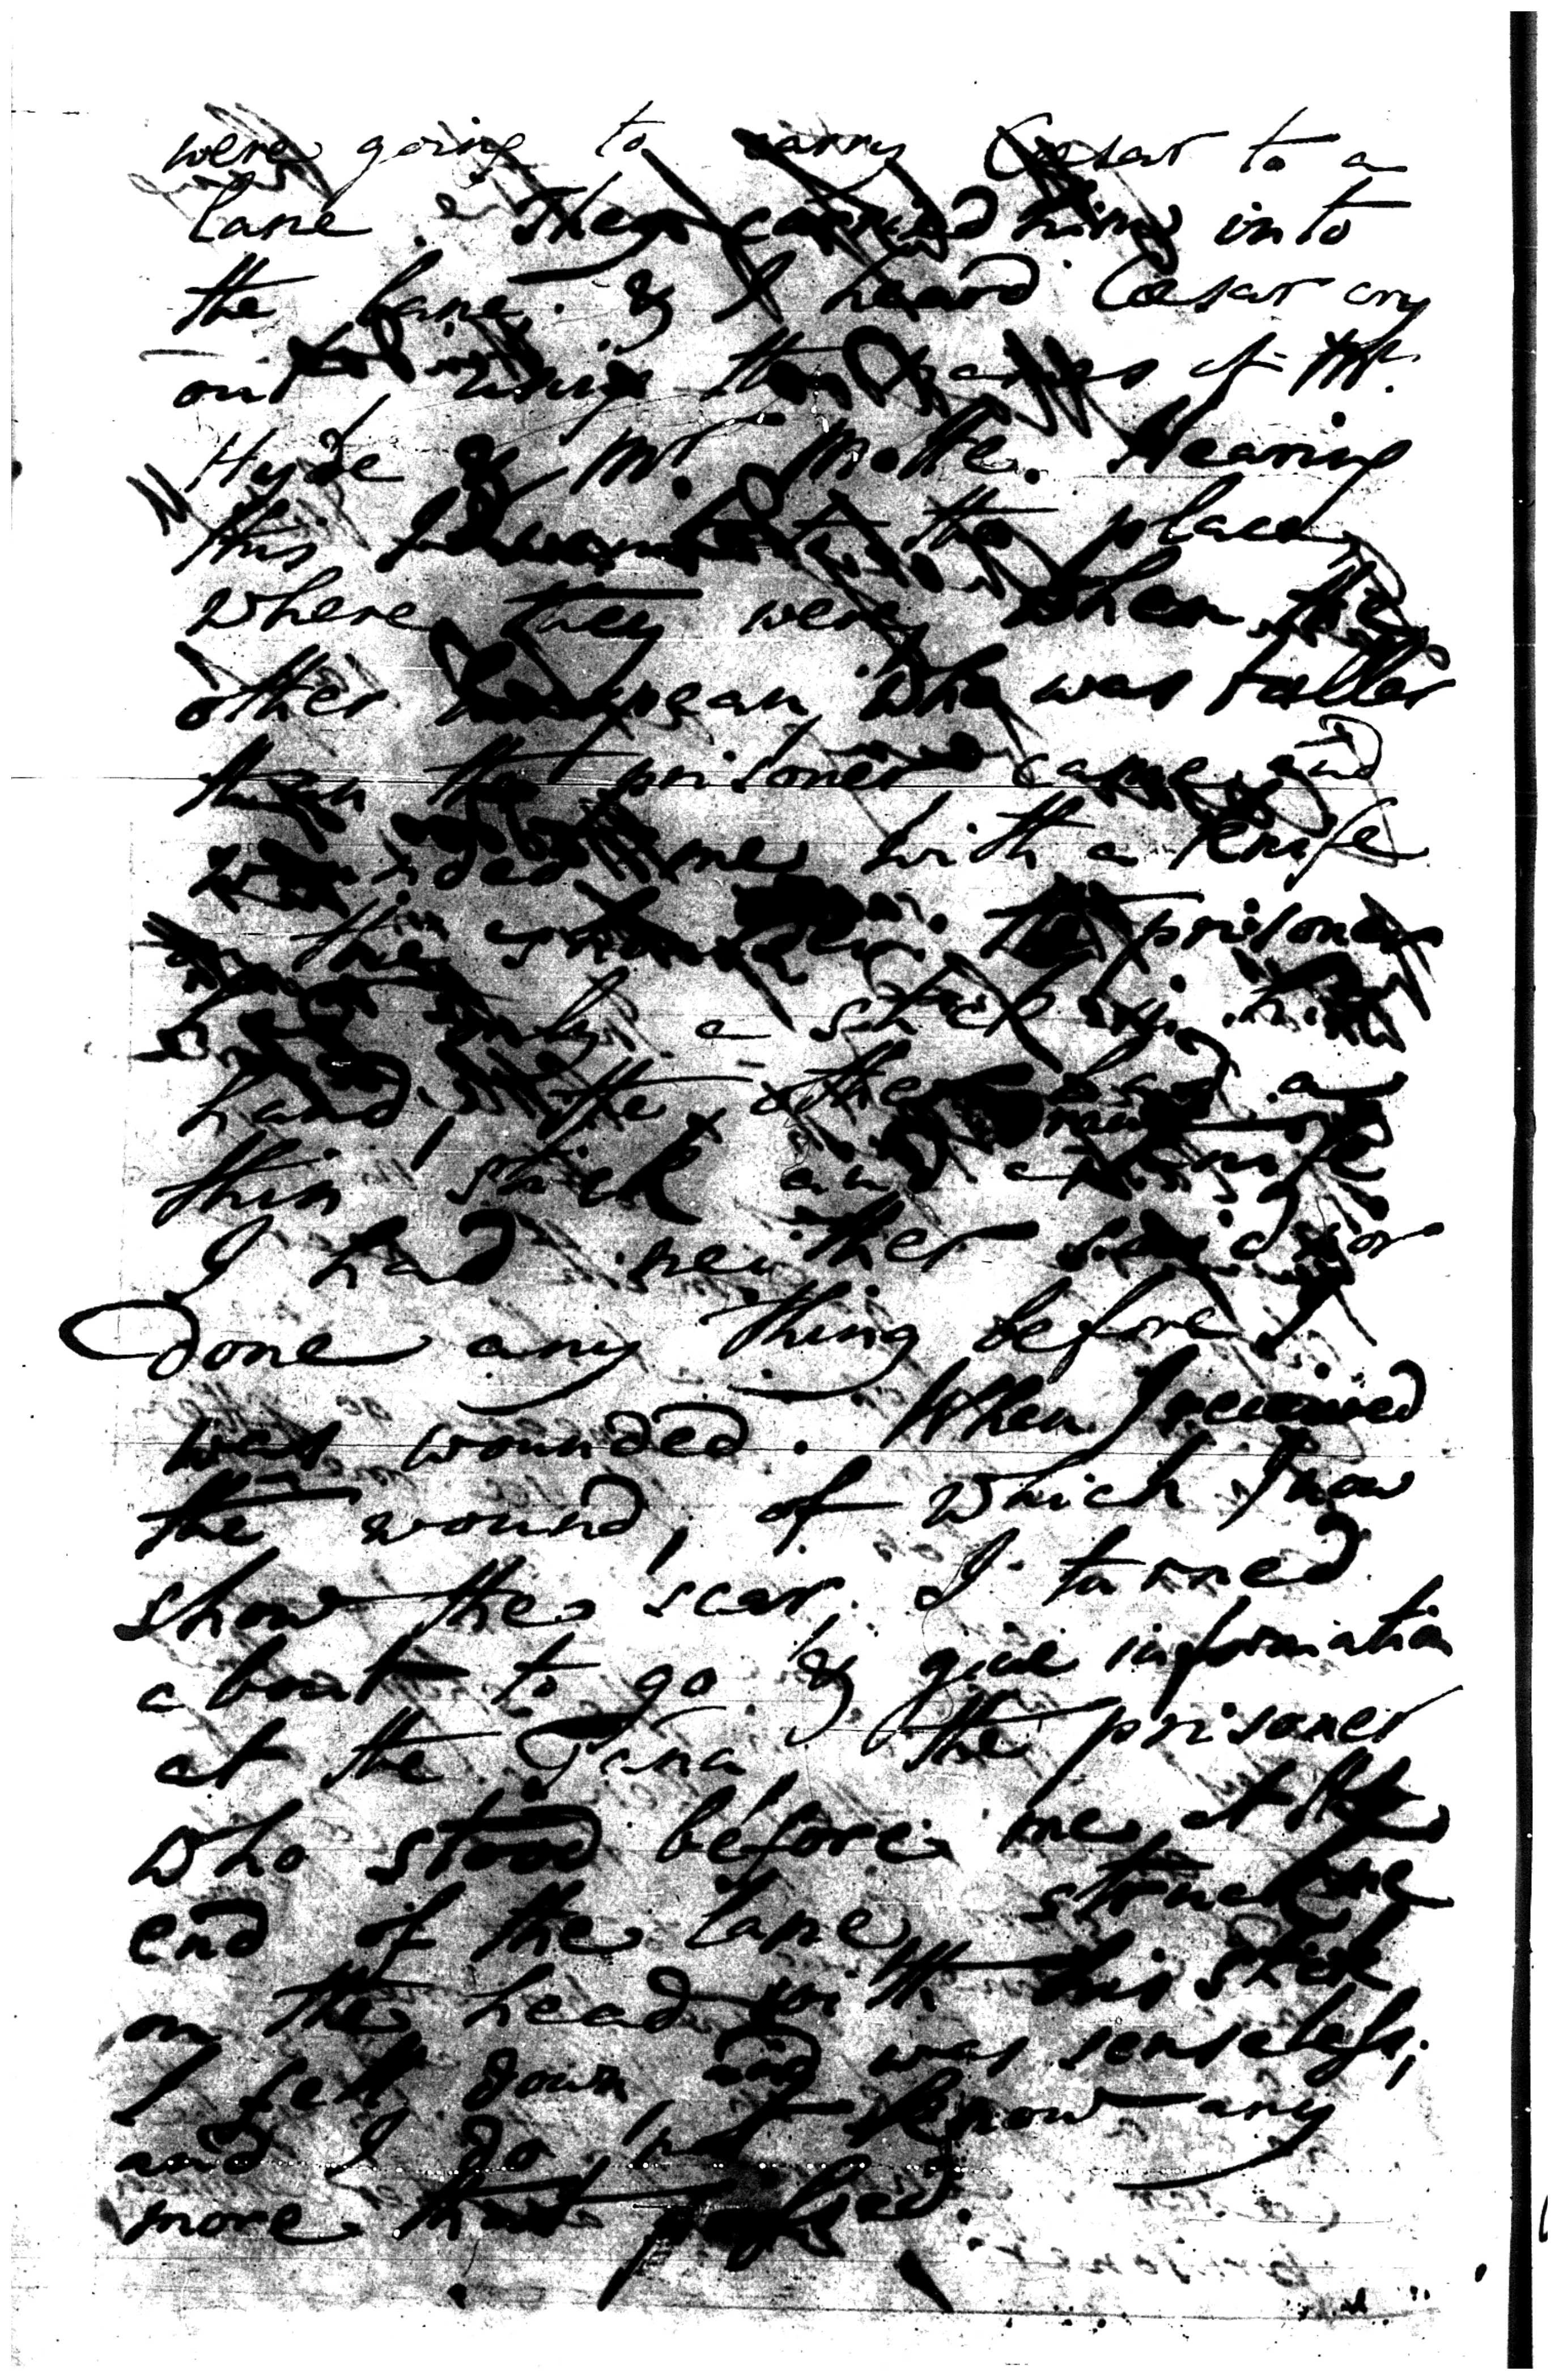 were going to carry Cæsar to a
lane. They carried him into
the lane. & I heard Cæsar cry
out using the names of Mr.
Hyde & Mr. Motte. Hearing
this I went to the place
where they were, when the
other European, who was taller
than the prisoner came and
wounded me with a knife
in the shoulder. The prisoner
had only a stick in his
hand, the other had a
thin stick and a knife
I had neither said nor
done any thing before I
was wounded. When I received
the wound, of which I now
show the scar, I turned
about to go & give information
at the Tana, the prisoner
who stood before me, at the
end of the lane, struck me
on the head with his stick
I fell down, and was senseless;
and I do not know any
more that passed.